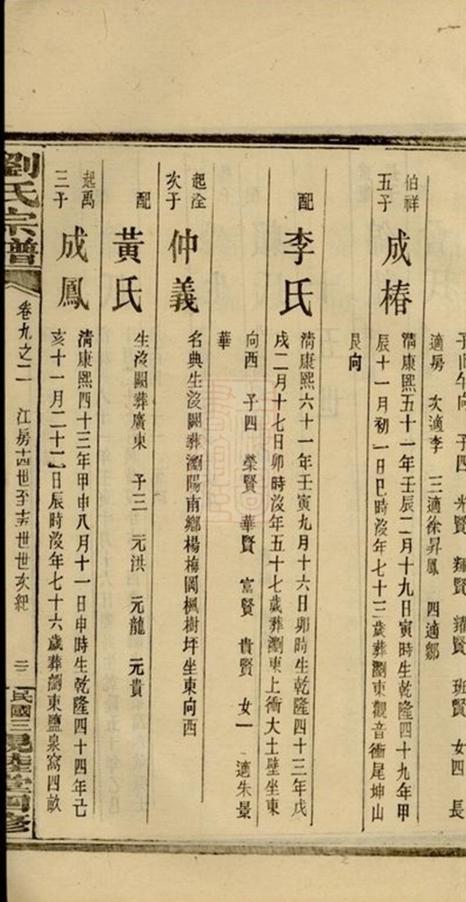 子山午向 子四 光賢 輝賢 耀賢 班賢 女四 長
適房 次適李 三適徐昇鳳 四適鄒
伯祥五子 成椿 清康熙五十一年壬辰二月十九日寅時生乾隆四十九年甲
辰十一月初一日巳時沒年七十三歲葬瀏東觀音衝尾坤山
艮向
配 李氏 清康熙六十一年壬寅九月十六日卯時生乾隆四十三年戊
戌二月十七日卯時沒年五十七歲葬瀏東上衝大土壁坐東
向西 子四 榮賢 華賢 富賢 貴賢 女一 適朱景
華
起淦次子 仲義 名典生沒闕葬瀏陽南鄉楊梅岡楓樹坪坐東向西
配 黃氏 生沒闕葬廣東 子三 元洪 元龍 元貴
起禹三子 成鳳 清康熙四十三年甲申八月十一日申時生乾隆四十四年己
亥十一月二十二日辰時沒年七十六歲葬瀏東鹽泉窩四畝
劉氏宗譜 卷九之二 江房 世至 世世次紀 民國三 堂四修